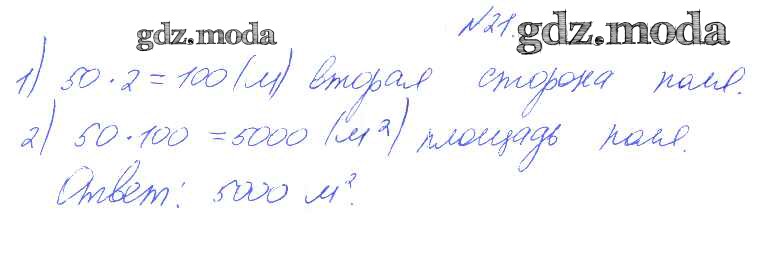 gdz.moda
№21. gdz.moda
1) 50 · 2 = 100 (м) вторая сторона поля.
2) 50 · 100 = 5000 (м²) площадь поля.
Ответ: 5000 м².